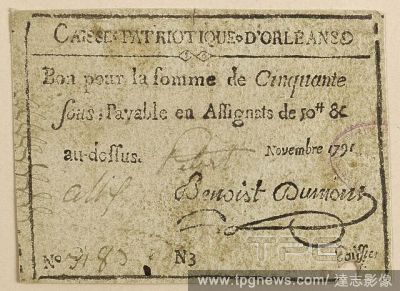 CAISSE PATRIOTIQUE D'ORLÉANS
Bon pour la somme de Cinquante
sous, Payable en Assignats de 50ᵗᵗ &
au-dessus.
Novembre 1791
Benoist Dumont
Nº 3183 N3 Caissier
TPG
www.tpgnews.com / 達志影像